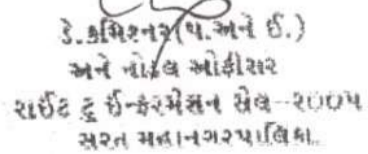 ડે.કમિશ્નર(પ.અને ઈ.)
અને નોડલ ઓફીસર
રાઈટ ટુ ઈન્ફરમેશન સેલ-૨૦૦૫
સુરત મહાનગરપાલિકા.